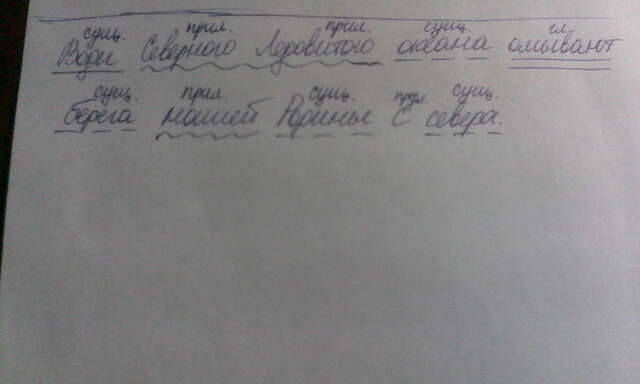 сущ. прил. прил. сущ. гл.
Воды Северного Ледовитого океана омывают
сущ. прил. сущ. предл. сущ.
берега нашей Родины с севера.